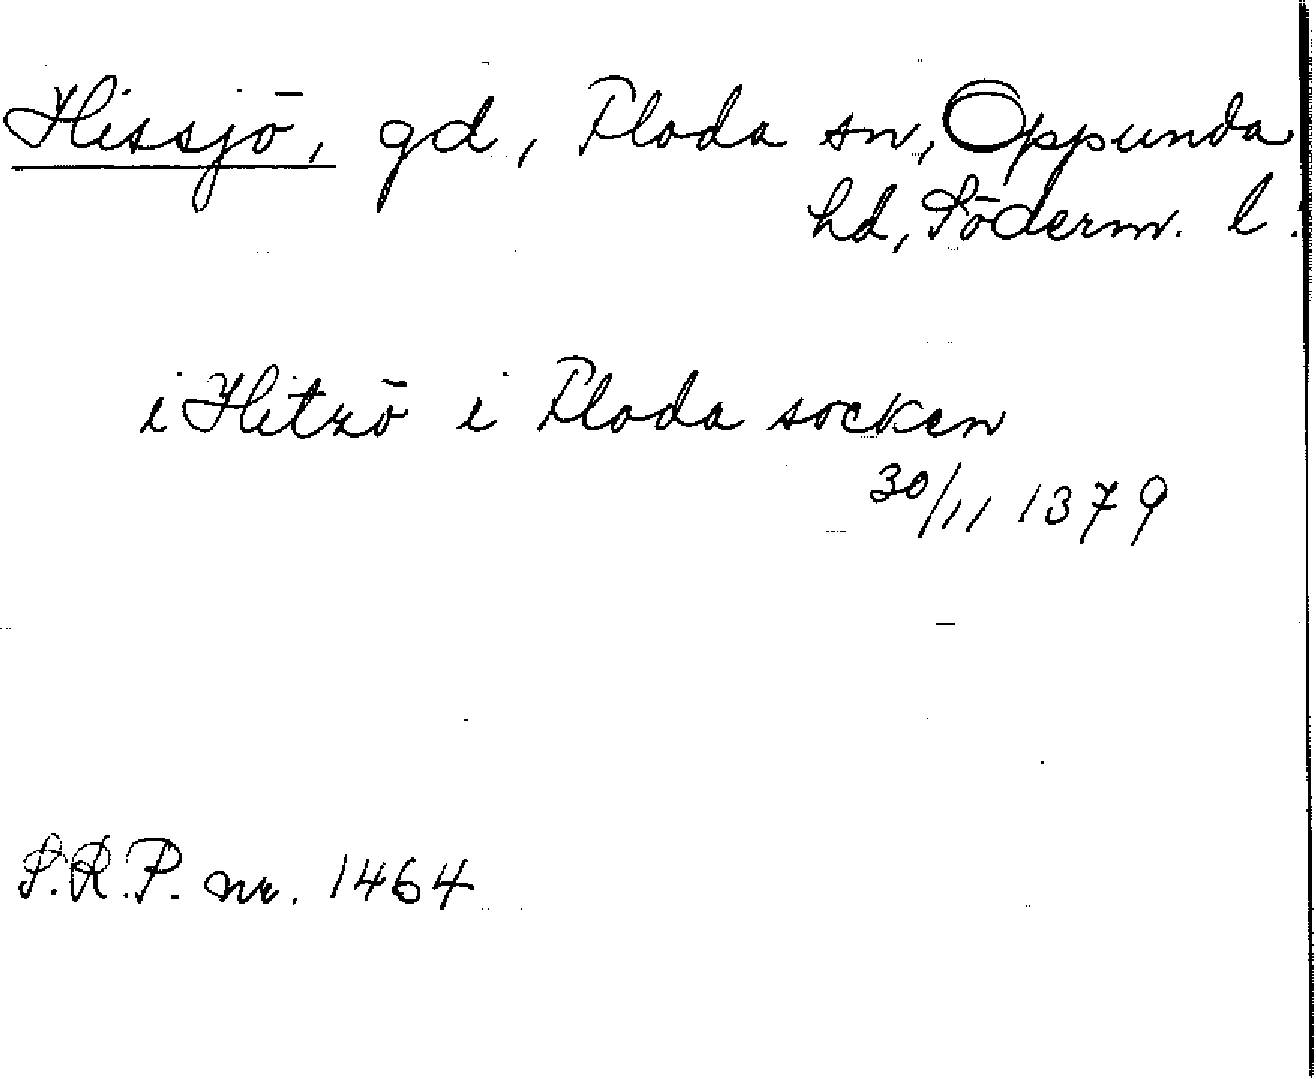 Hissjö, gd, Floda sn, Oppunda
hd, Söderm. l.
i Hitzö i Floda socken
30/11 1379
S.R.P. nr. 1464